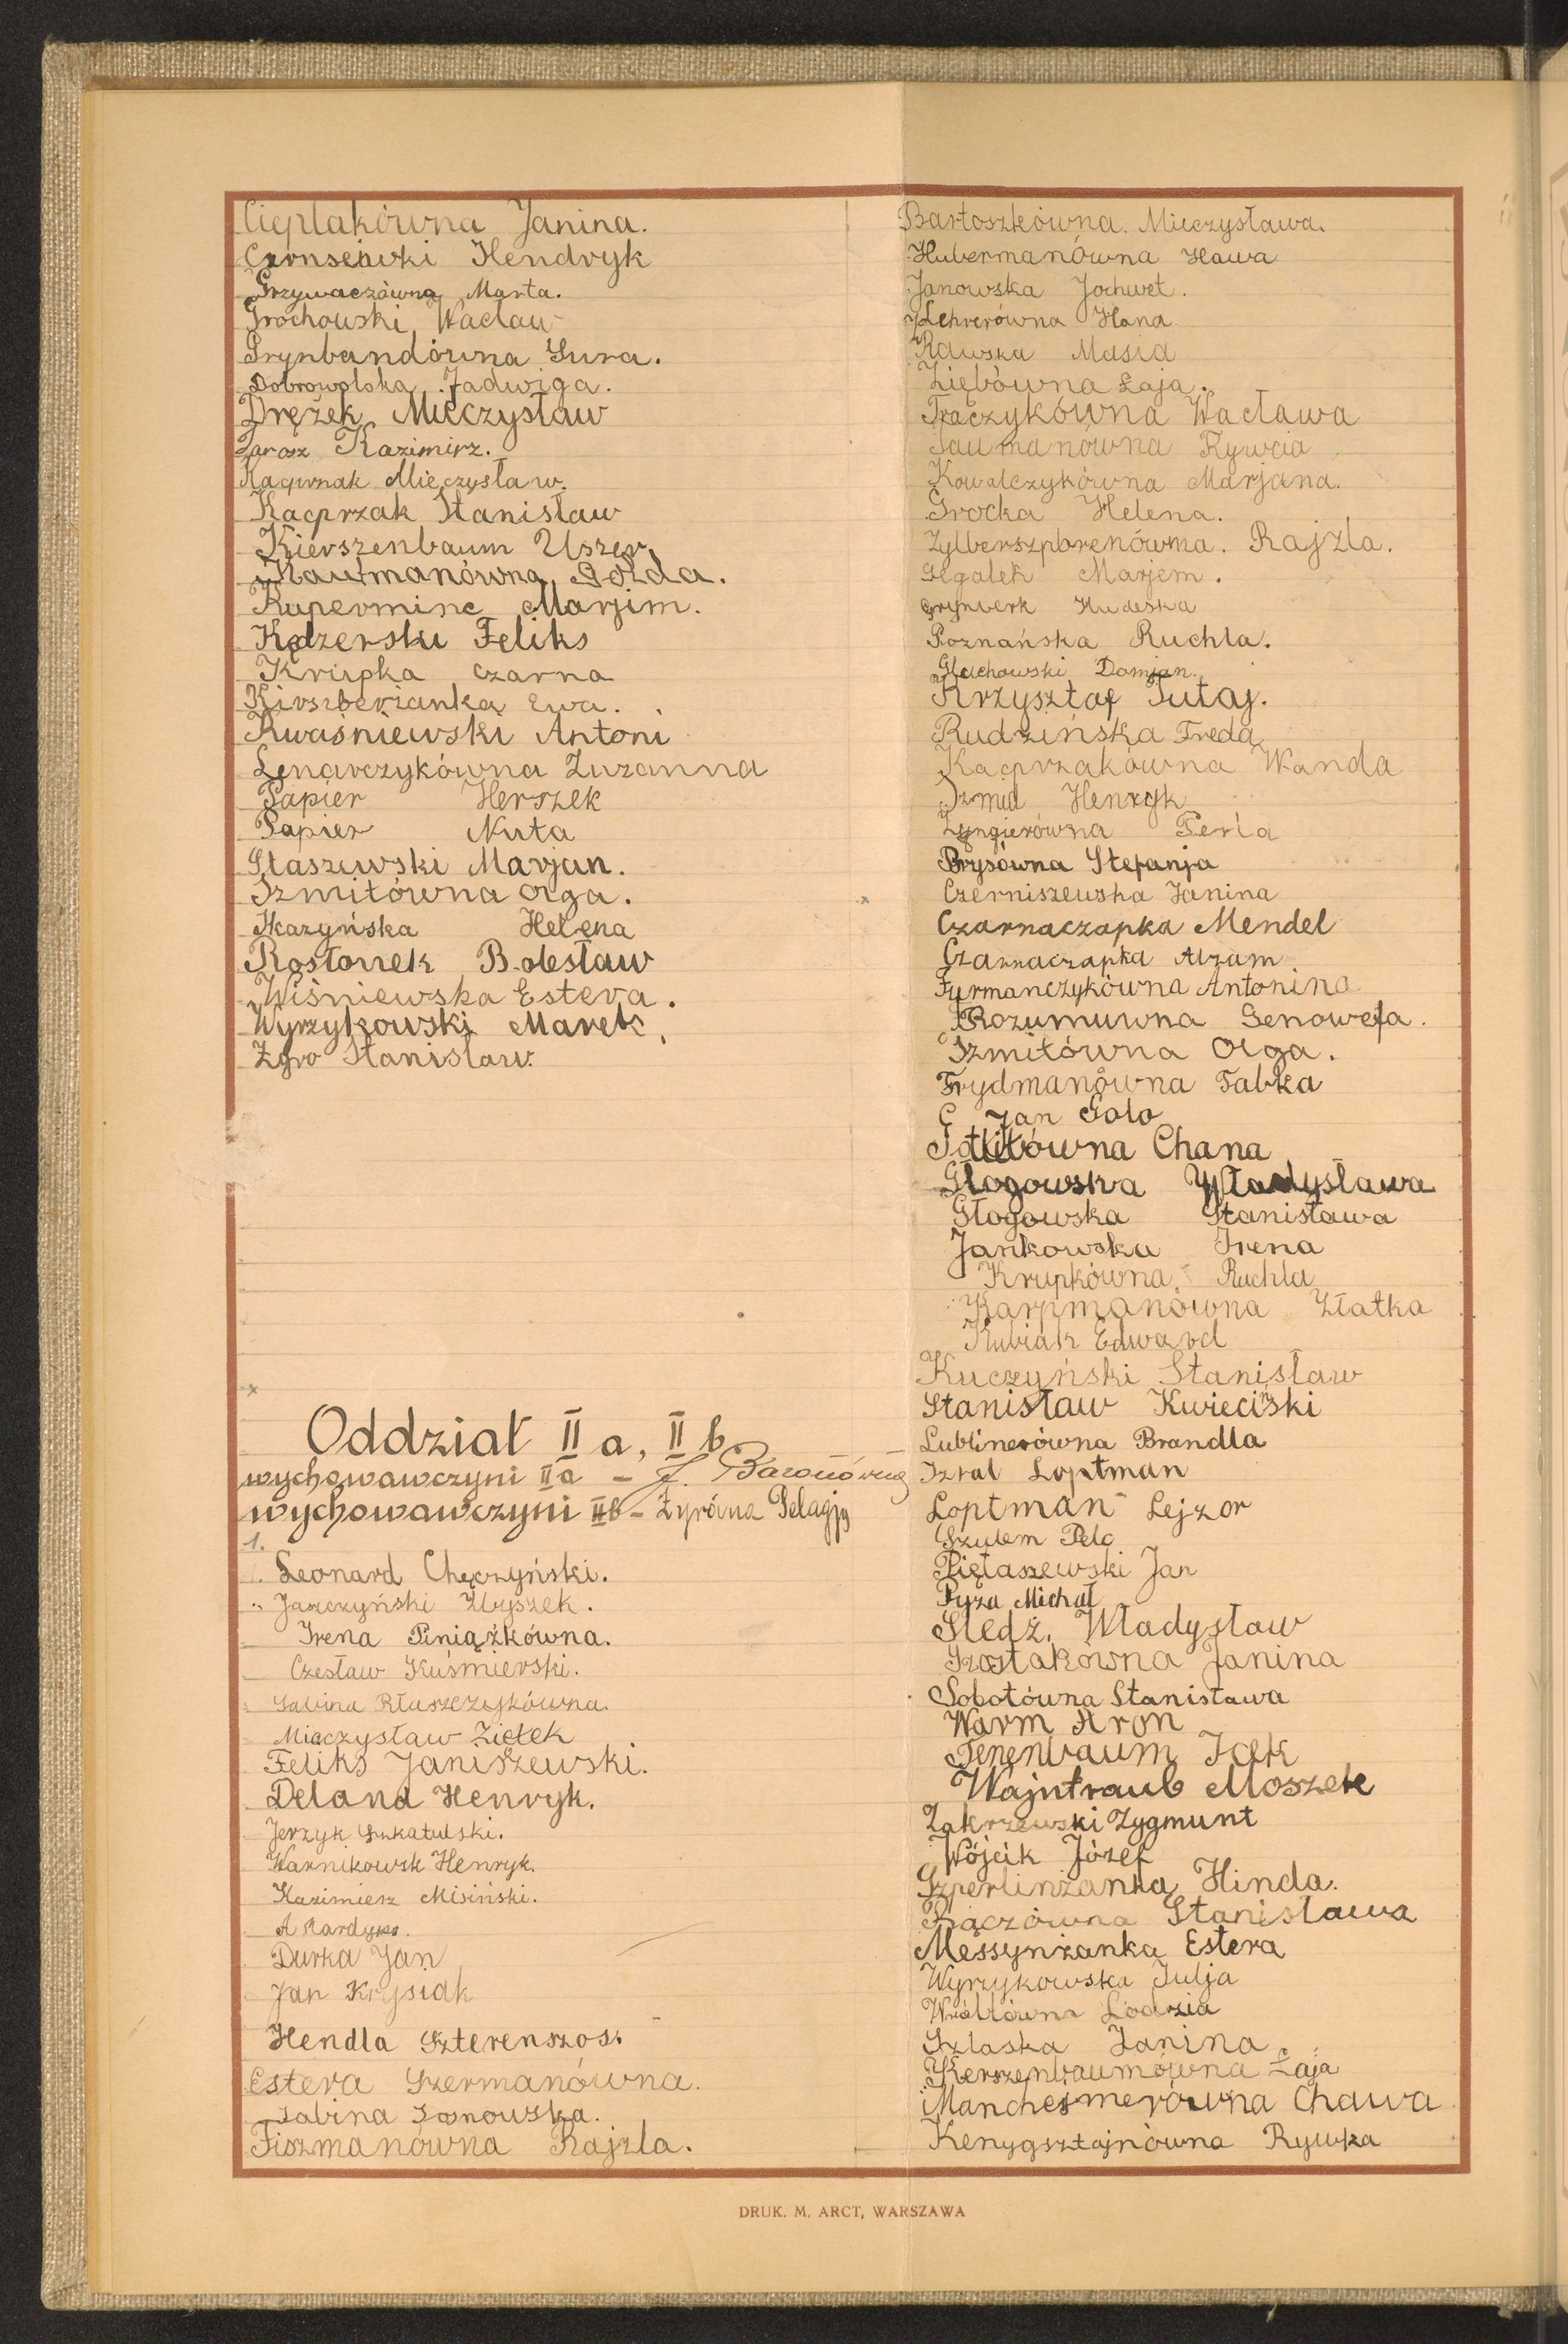 Cieplakówna Janina.
Czonseiwki Hendryk
Grzywaczówna Marta.
Grochowski Wacław
Grynbandówna Sura.
Dobrowolska Jadwiga.
Drężek Mieczysław
Jarosz Kazimirz.
Mieczysław.
Kacprzak Stanisław
Kierszenbaum Uszer.
Kaufmanówna Gołda.
Kupermine Marjim.
Kędzerski Feliks
Krupka Czarna
Kirszberżanka Ewa.
Kwaśniewski Antoni
Lenarczykówna Zuzanna
Papier Herszek
Papier Nuta
Staszewski Marjan.
Szmitówna Olga.
Skazyńska Helena
Rosłonek Bolesław
Wiśniewska Estera.
Wyrzykowski Marek,
Zgro Stanisław.
Oddział II a, II b
wychowawczyni IIa – J.
wychowawczyni IIb – Żyrówna Pelagja
1.
Leonard Chęczyński.
Jaszczyński Zbyszek.
Irena Piniążkówna.
Czesław Kuśmierski.
Sabina Kłuszczykówna.
Mieczysław Ziełek
Feliks Janiszewski.
Deland Henryk.
Jerzyk Szkatulski.
Warnikowsk Henryk.
Kazimierz Misiński.
A
Durka Jan
Jan Krysiak
Hendla Szterenszos.
Estera Szermanówna.
Sabina Sosnowska.
Fiszmanówna Rajzla.
Bartoszkówna. Mieczysława.
Hubermanówna Hawa
Janowska Jochwet.
Lehrerówna Hana
Rawska Masia
Ziębówna Łaja.
Traczykówna Wacława
Taumanówna Rywcia
Kowalczykówna Marjana.
Grocka Helena.
Rajzla.
Segałek Marjem.
Grynberk Hudeska
Poznańska Ruchla.
Głuchowski Damjan.
Krzysztof Tutaj.
Rudzińska Freda
Kacprzakówna Wanda
Szmid Henryk
Zyngierówna Perla
Brysówna Stefanja
Czerniszewska Janina
Czarnaczapka Mendel
Czarnaczapka Abram
Furmanczykówna Antonina
Rozumuwna Genowefa.
Szmitówna Olga.
Frydmanówna Fabka
G Jan Golo
Chana
Głogowska Władysława
Głogowska Stanisława
Jankowska Irena
Krupkówna, Ruchla
Karpmanówna Złatka
Kubiak Edward
Kuczyński Stanisław
Stanisław Kwieciński
Lublinerówna Brandla
Izral Loptman
Loptman Lejzor
Szulem Pelc
Piętaszewski Jan
Pyza Michał
Śledź, Władysław
Szostakówna Janina
Sobotówna Stanisława
Warm Aron
Tenenbaum Icek
Wajntraub Moszek
Zakrzewski Zygmunt
Wójcik Józef
Szperlinżanka Hinda.
Rączówna Stanisława
Messynżanka Estera
Wyrzykowska Julja
Wróblówna Lodzia
Szlaska Janina
Kerszenbaumówna Łaja
Manchejmerówna Chawa
Kenygsztajnówna Rywka
DRUK. M. ARCT, WARSZAWA